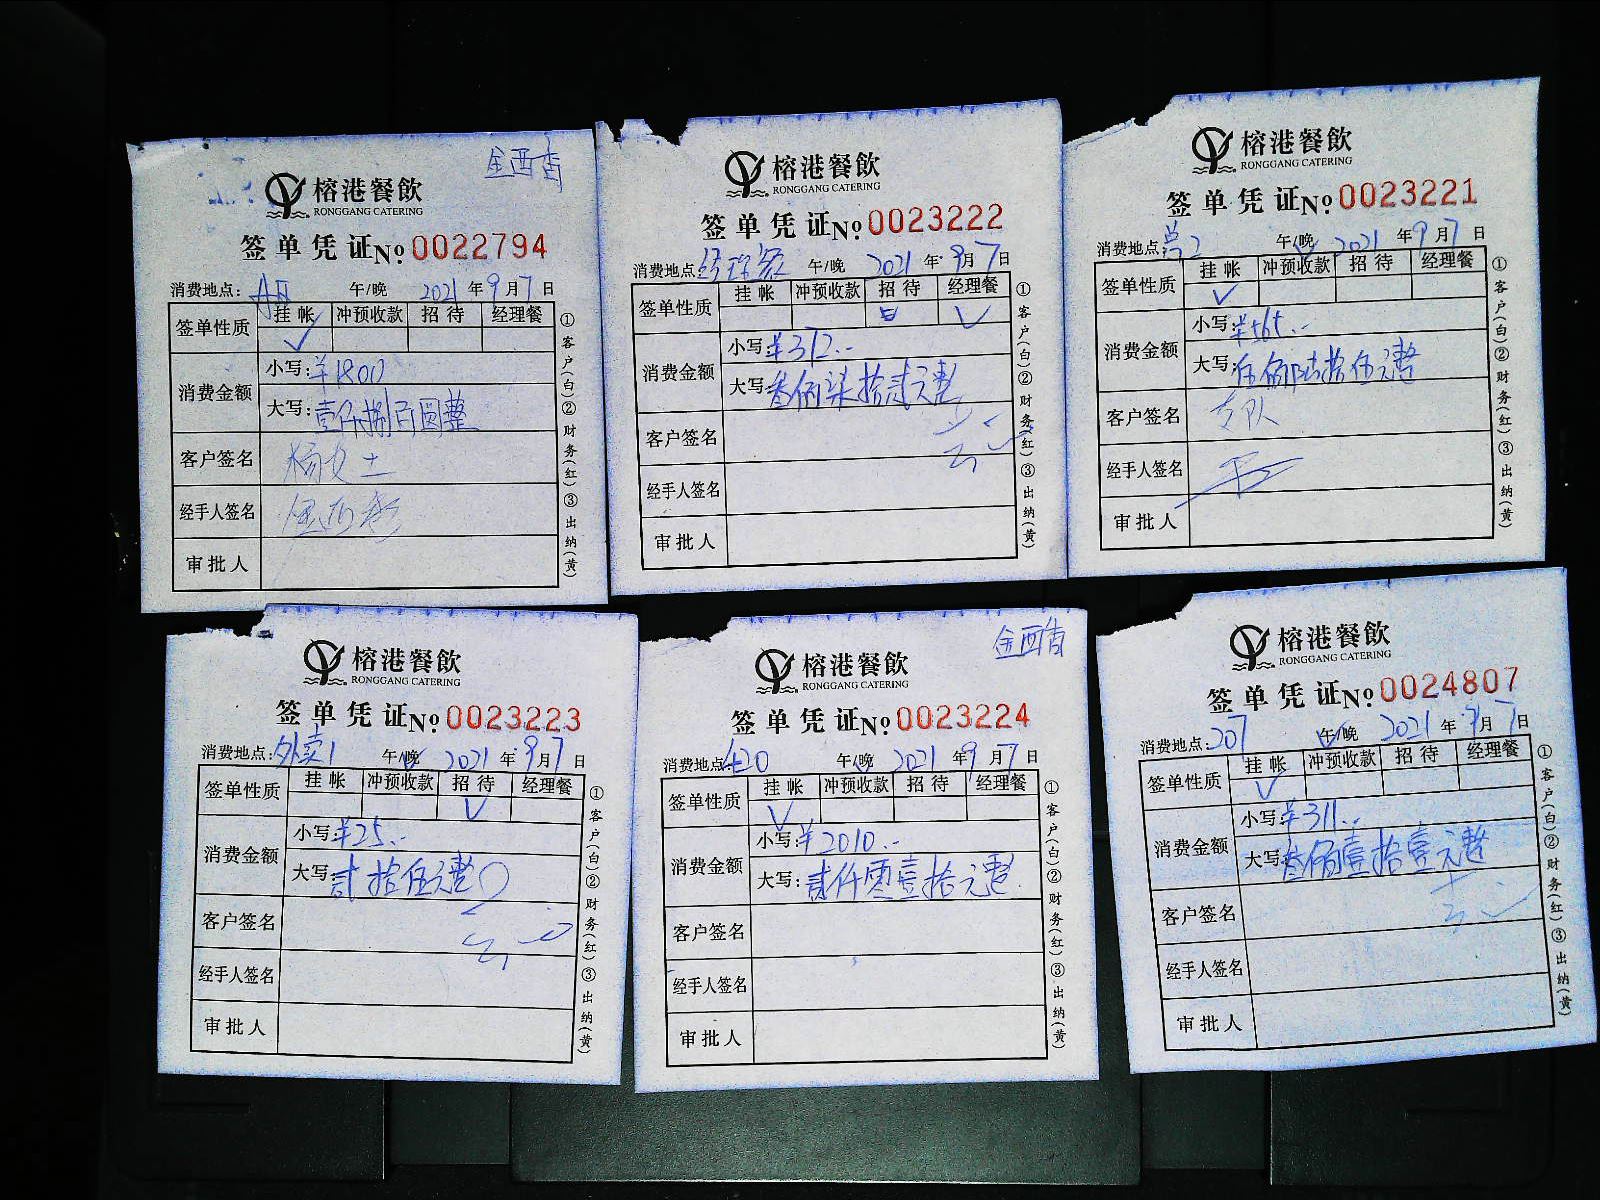 金西香
榕港餐飲
RONGGANG CATERING
签单凭证 No 0022794
消费地点: 午/晚 2021年9月7日
签单性质 挂帐 冲预收款 招待 经理餐
✓
消费金额 小写: ¥1800
大写: 壹仟捌百圆整
客户签名 杨女士
经手人签名
审批人
①客户(白)②财务(红)③出纳(黄)
榕港餐飲
RONGGANG CATERING
签单凭证 No 0023222
消费地点 经理餐 午/晚 2021年9月7日
签单性质 挂帐 冲预收款 招待 经理餐
✓
消费金额 小写: ¥372.-
大写: 叁佰柒拾贰元整
客户签名
经手人签名
审批人
①客户(白)②财务(红)③出纳(黄)
榕港餐飲
RONGGANG CATERING
签单凭证 No 0023221
消费地点 午/晚 2021年9月7日
签单性质 挂帐 冲预收款 招待 经理餐
✓
消费金额 小写: ¥565.-
大写: 伍佰陆拾伍元整
客户签名 支队
经手人签名
审批人
①客户(白)②财务(红)③出纳(黄)
榕港餐飲
RONGGANG CATERING
签单凭证 No 0023223
消费地点: 外卖1 午/晚 2021年9月7日
签单性质 挂帐 冲预收款 招待 经理餐
✓
消费金额 小写: ¥25.-
大写: 贰拾伍元整
客户签名
经手人签名
审批人
①客户(白)②财务(红)③出纳(黄)
金西香
榕港餐飲
RONGGANG CATERING
签单凭证 No 0023224
消费地点 420 午/晚 2021年9月7日
签单性质 挂帐 冲预收款 招待 经理餐
✓
消费金额 小写: ¥2010.-
大写: 贰仟零壹拾元整
客户签名
经手人签名
审批人
①客户(白)②财务(红)③出纳(黄)
榕港餐飲
RONGGANG CATERING
签单凭证 No 0024807
消费地点: 207 午/晚 2021年9月7日
签单性质 挂帐 冲预收款 招待 经理餐
✓
消费金额 小写: ¥311.-
大写: 叁佰壹拾壹元整
客户签名
经手人签名
审批人
①客户(白)②财务(红)③出纳(黄)